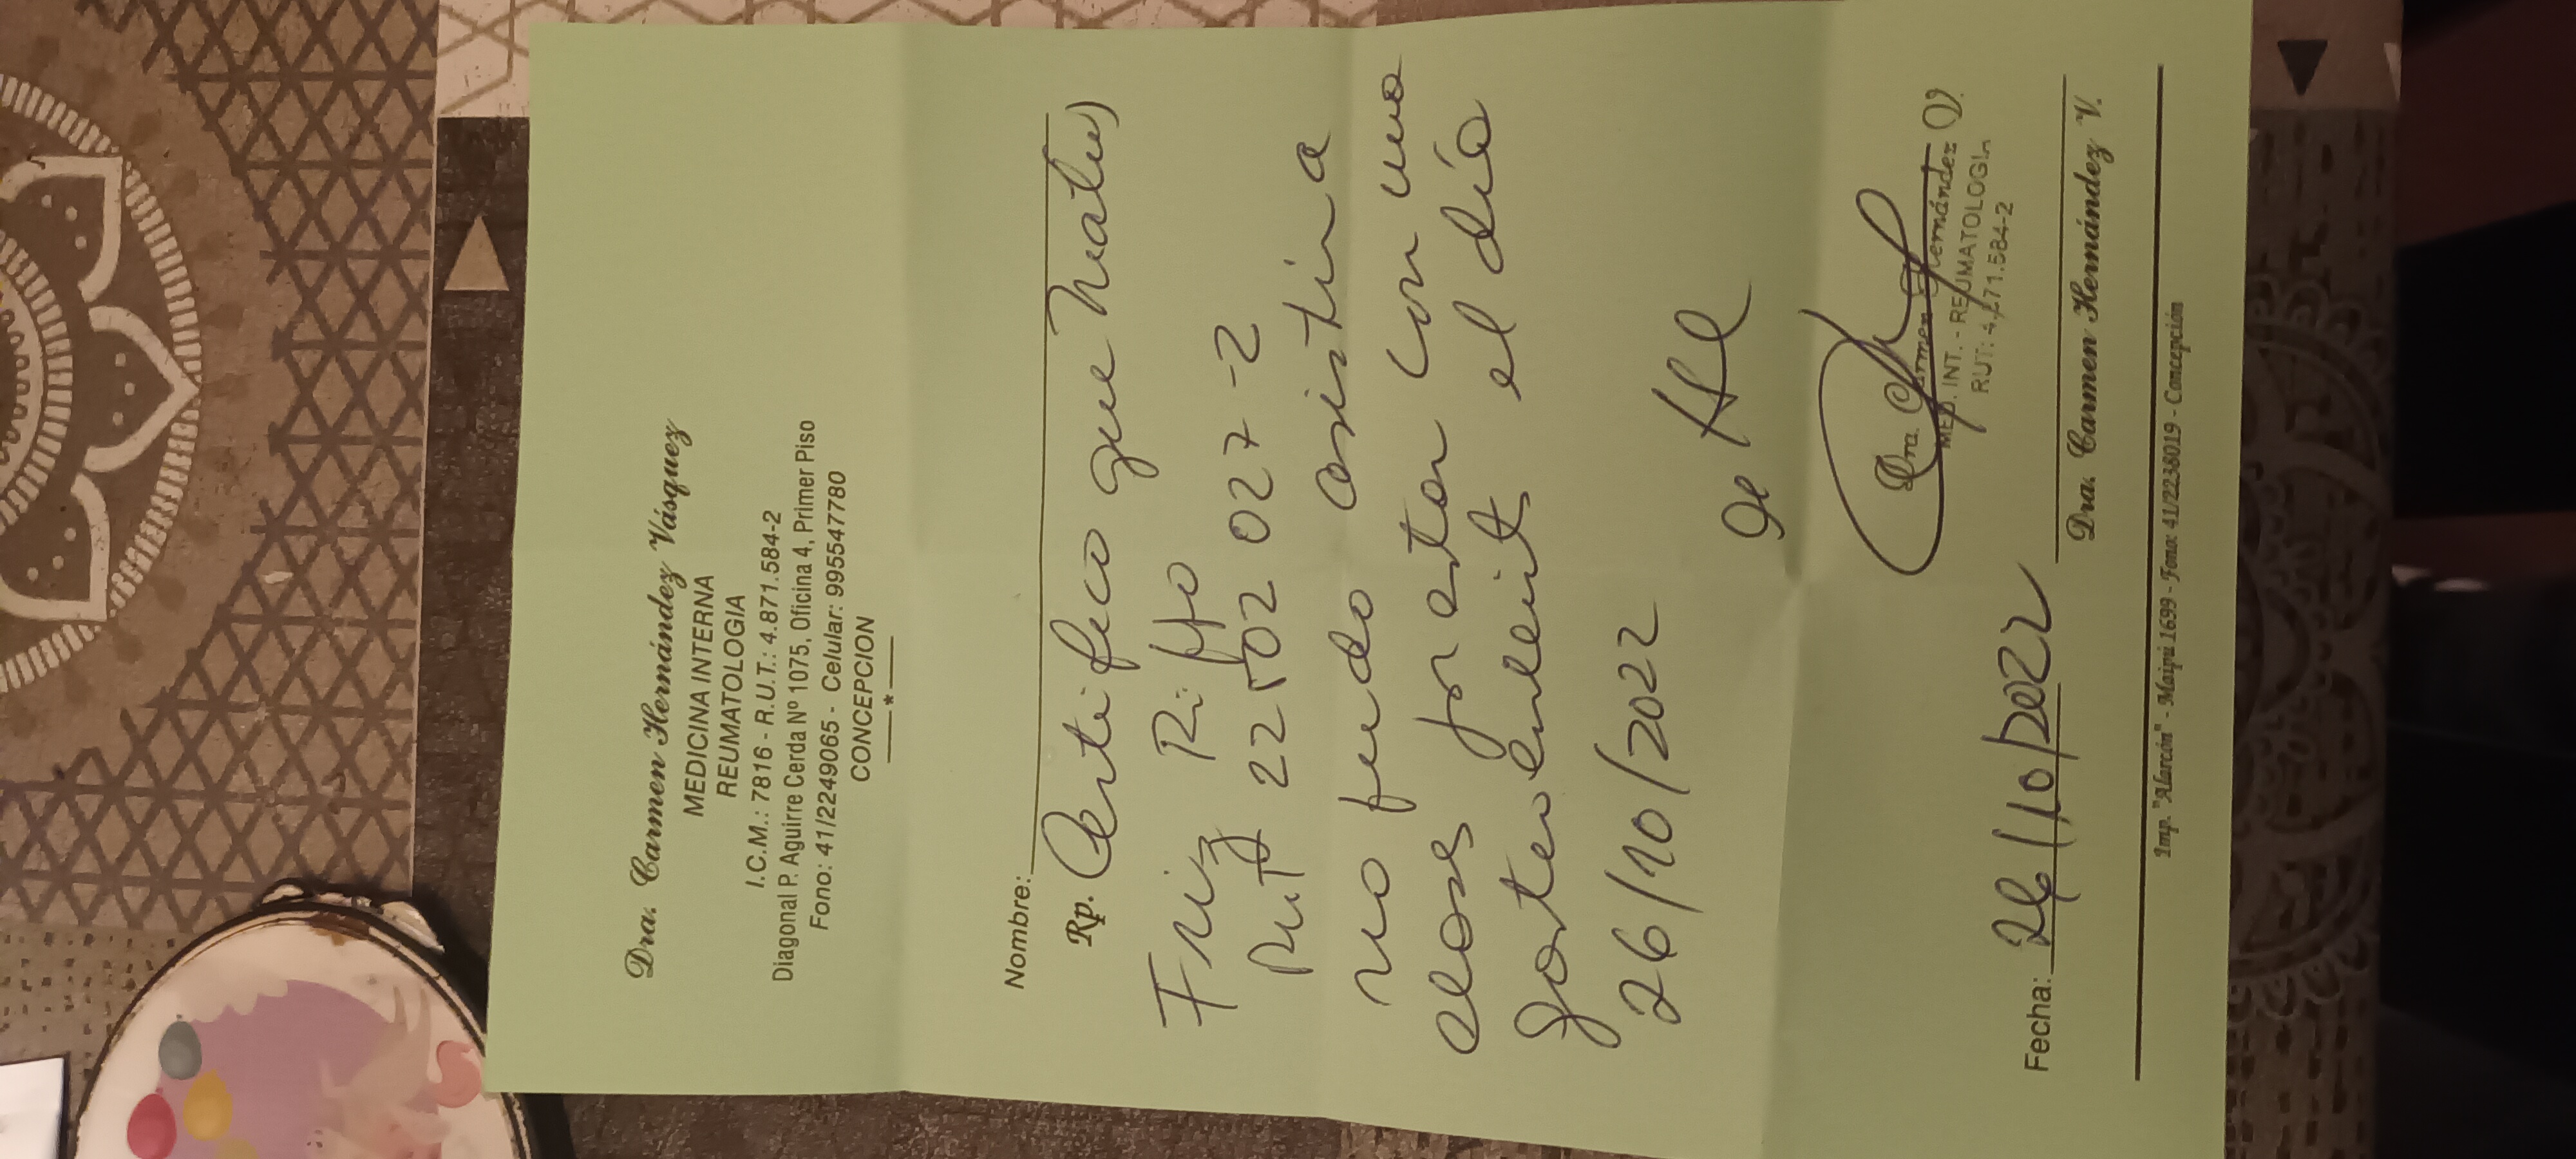 Dra. Carmen Hernández Vásquez
MEDICINA INTERNA
REUMATOLOGIA
I.C.M.: 7816 - R.U.T.: 4.871.584-2
Diagonal P. Aguirre Cerda Nº 1075, Oficina 4, Primer Piso
Fono: 41/2249065 - Celular: 995547780
CONCEPCION
*
Nombre:
Rp. Certifico que
Friz Riffo
Rut 22 502 027-2
no pudo asistir a
clases por estar con una
gastroenteritis el día
26/10/2022
Dra. Carmen Hernández V.
MED. INT. - REUMATOLOGIA
RUT: 4.871.584-2
Fecha: 26/10/2022
Dra. Carmen Hernández V.
Imp. "Alarcón" - Maipú 1699 - Fono: 41/2238019 - Concepción